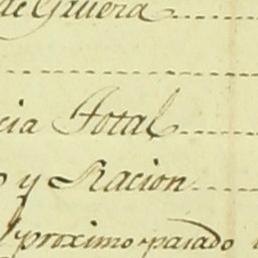 de Gruera
cia Total
y Racion
proximo pasado